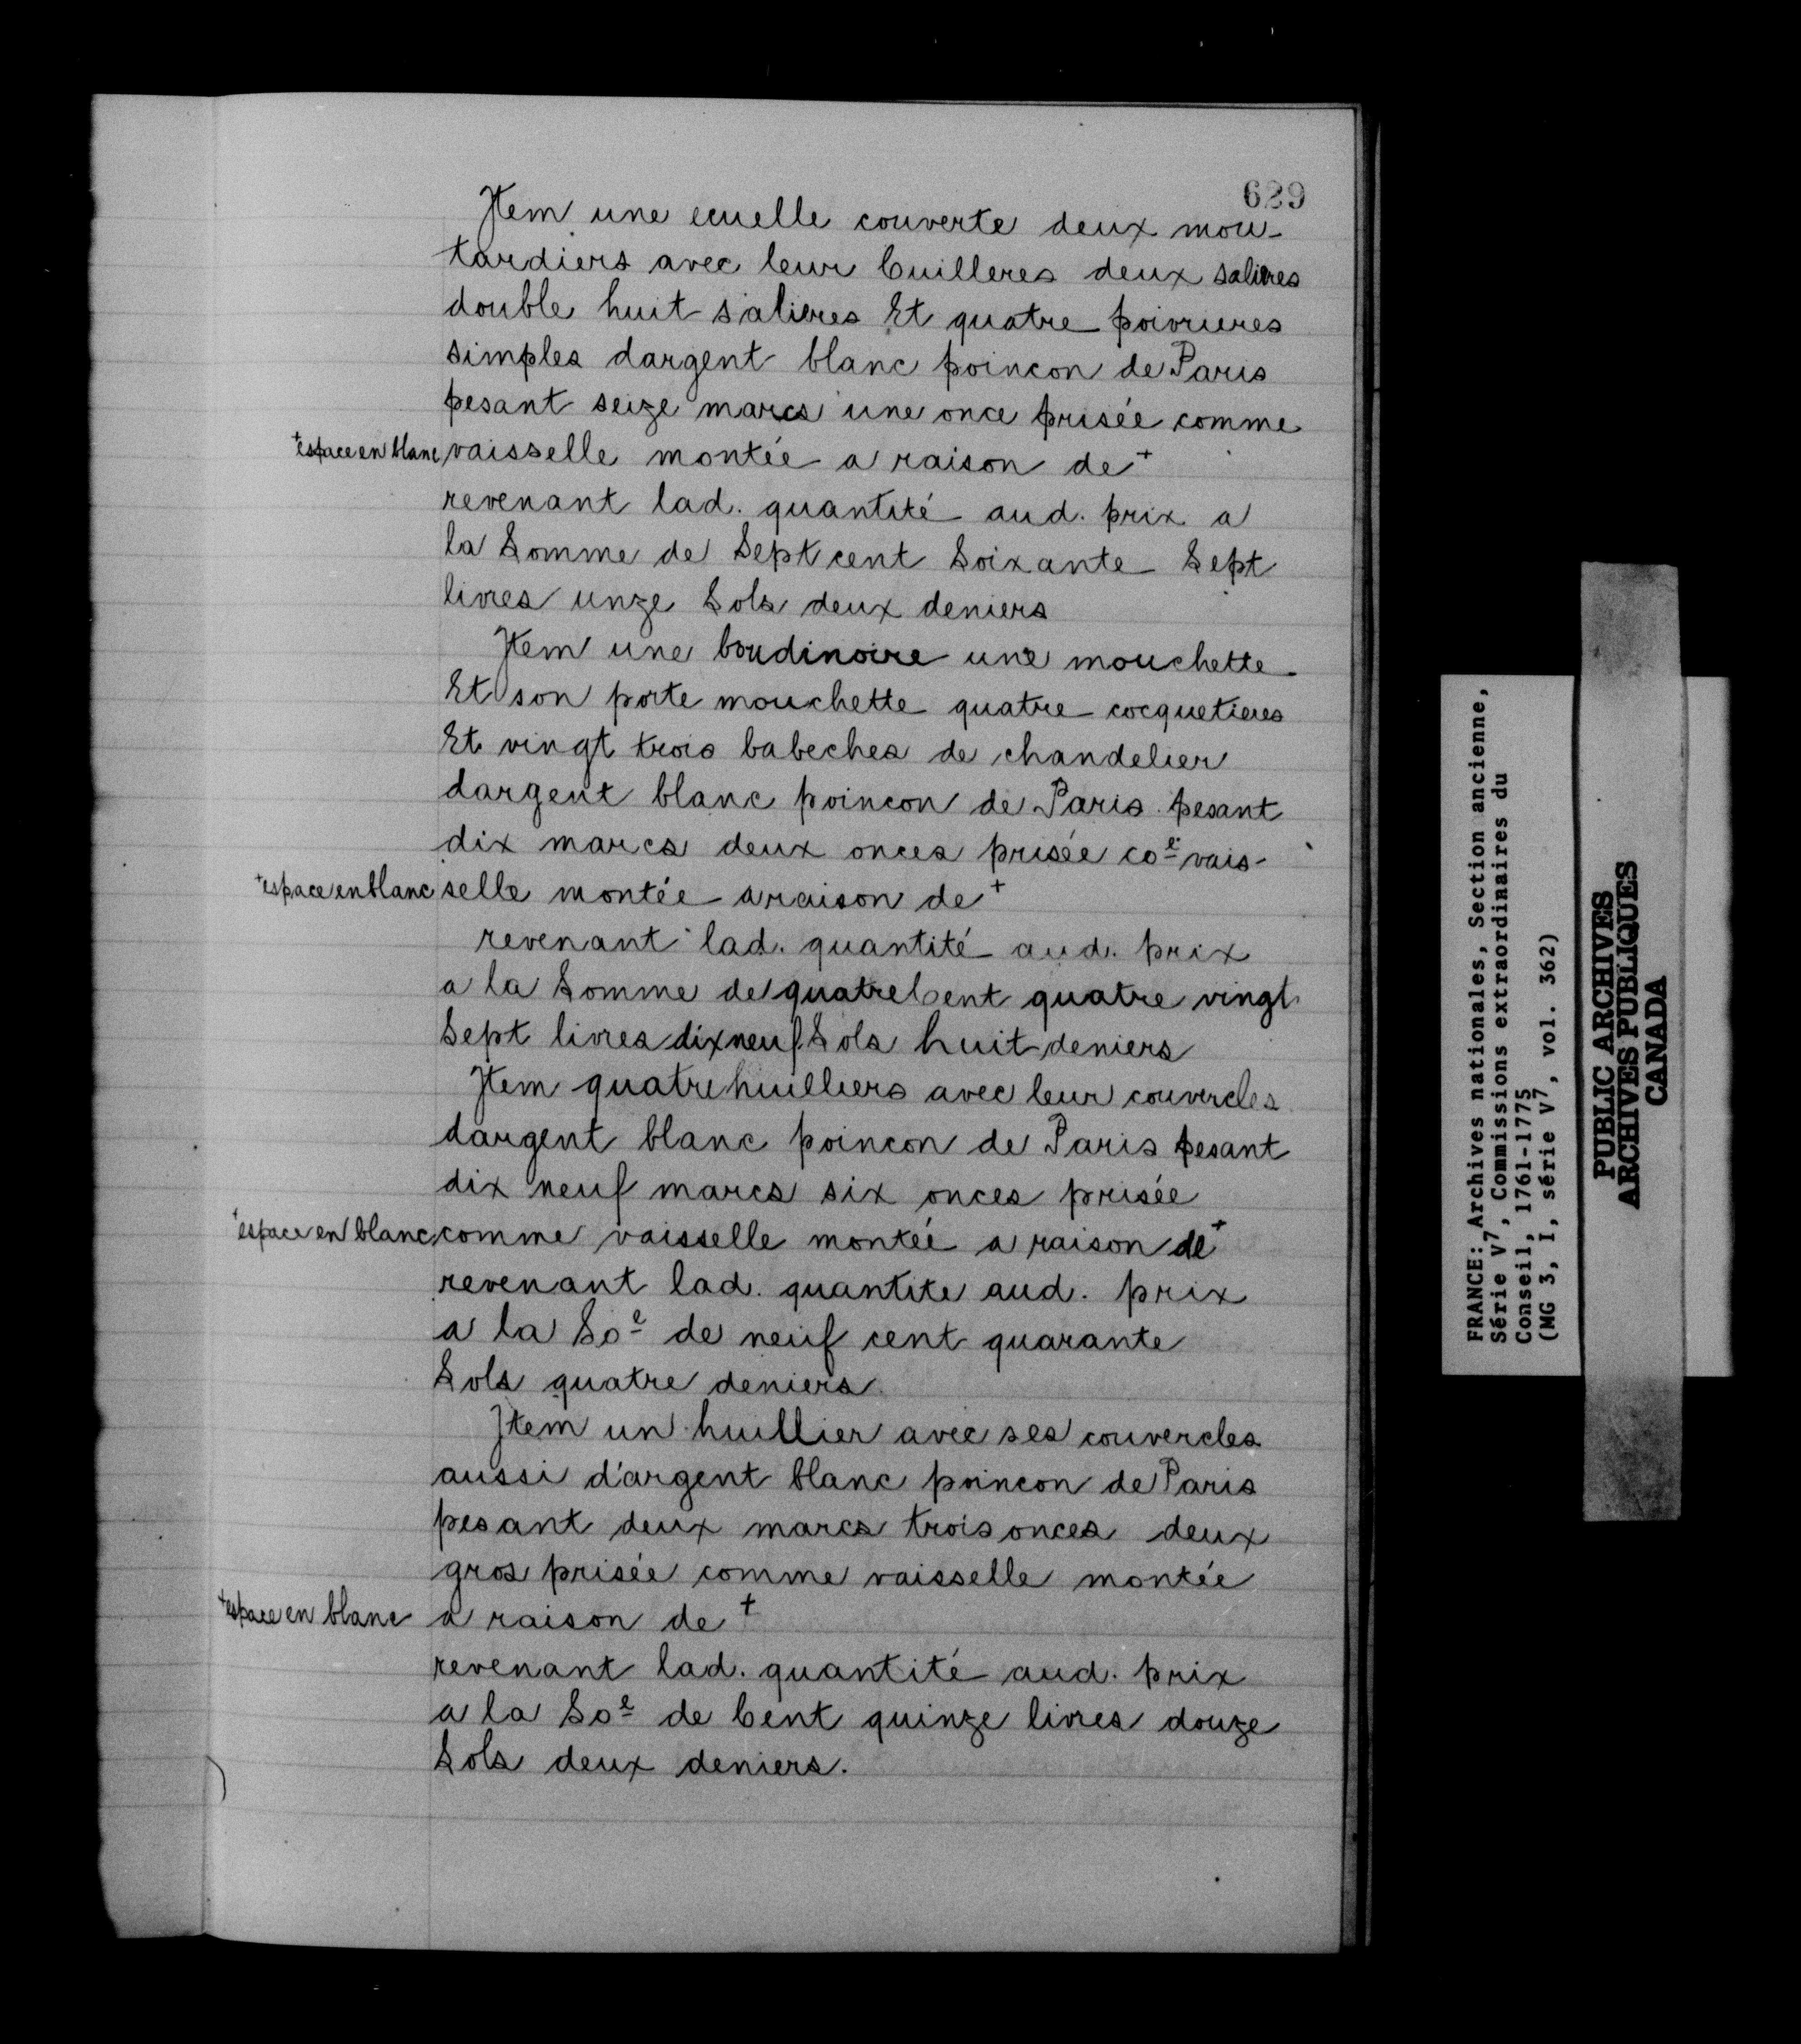 629
Item une ecuelle couverte deux mou-
tardiers avec leur Cuilleres deux salieres
double huit salieres Et quatre poivrieres
simples dargent blanc poincon de Paris
pesant seize marcs une once prisée comme
+espace en blanc vaisselle montée a raison de +
revenant lad. quantité aud. prix a
la Somme de Sept cent Soixante Sept
livres unze Sols deux deniers
Item une boudinoire une mouchette
Et son porte mouchette quatre cocquetieres
Et vingt trois babeches de chandelier
dargent blanc poincon de Paris pesant
dix marcs deux onces prisée coe vais-
+espace en blanc selle montée a raison de +
revenant lad. quantité aud. prix
a la Somme de quatre Cent quatre vingt
Sept livres dix neuf Sols huit deniers
Item quatre huilliers avec leur couvercles
dargent blanc poincon de Paris pesant
dix neuf marcs six onces prisée
+espace en blanc comme vaisselle montée a raison de +
revenant lad. quantite aud. prix
a la Soe de neuf cent quarante
Sols quatre deniers
Item un huillier avec ses couvercles
aussi d'argent blanc poincon de Paris
pesant deux marcs trois onces deux
gros prisée comme vaisselle montée
+espace en blanc a raison de +
revenant lad. quantité aud. prix
a la Soe de Cent quinze livres douze
Sols deux deniers.
FRANCE: Archives nationales, Section ancienne,
Série V7, Commissions extraordinaires du
Conseil, 1761-1775
(MG 3, I, série V7, vol. 362)
PUBLIC ARCHIVES
ARCHIVES PUBLIQUES
CANADA